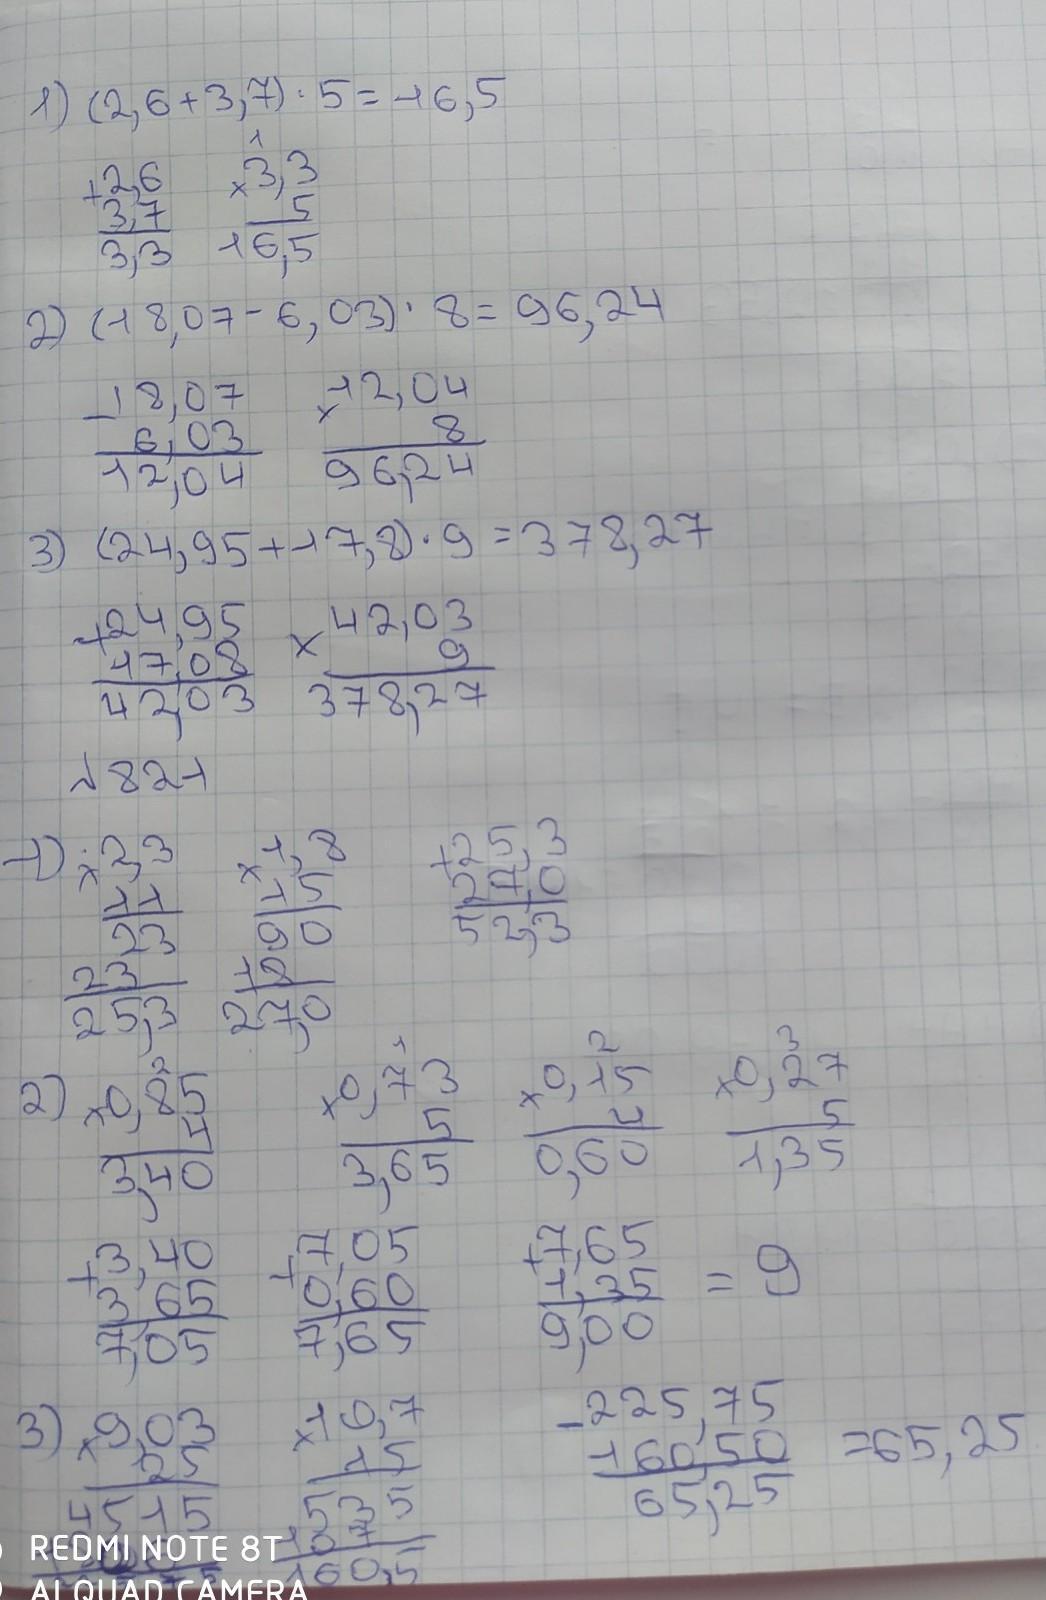 1) (2,6+3,7)·5=16,5
+2,6 ×3,3
1
3,7 5
3,3 16,5
2) (18,07-6,03)·8=96,24
-18,07 ×12,04
6,03 8
12,04 96,24
3) (24,95+17,8)·9=378,27
+24,95 ×42,03
17,08 9
42,03 378,27
√821
1) ×2,3 ×1,8 +25,3
11 15 27,0
23 90 52,3
23 18
25,3 27,0
2) ×0,85 ×0,73 ×0,15 ×0,27
2 1 2 3
4 5 4 5
3,40 3,65 0,60 1,35
+3,40 +7,05 +7,65 = 9
3,65 0,60 1,35
7,05 7,65 9,00
3) ×9,03 ×10,7 -225,75 =65,25
25 15 160,50
4515 535 65,25
107
160,5
REDMI NOTE 8T
AI QUAD CAMERA